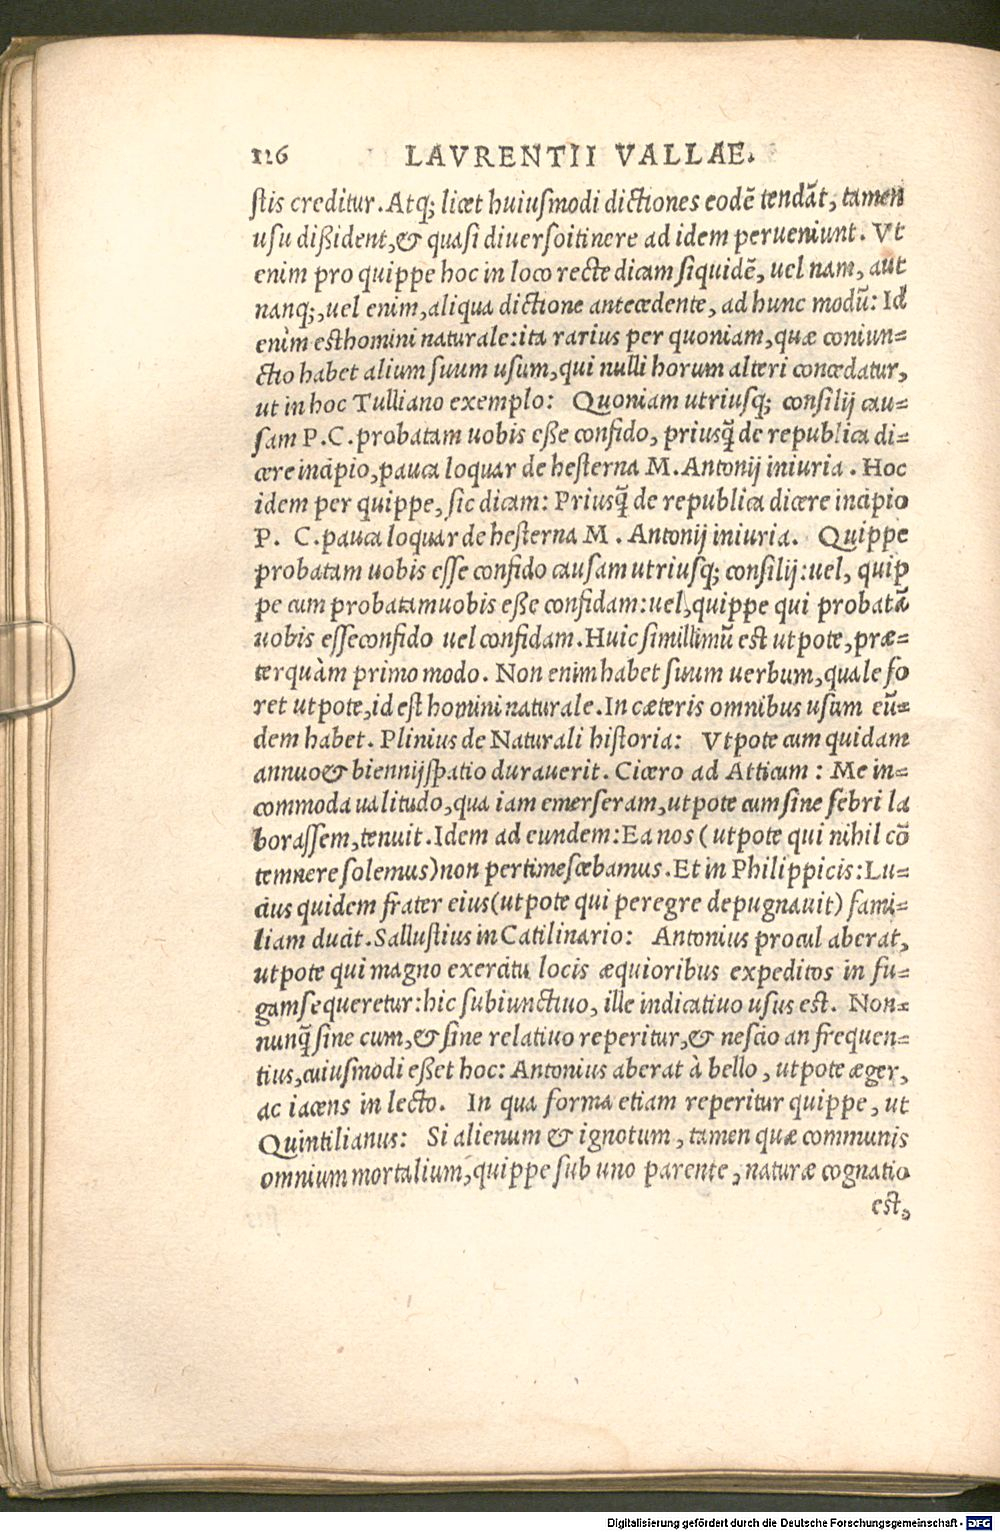 126 LAVRENTII VALLAE.
stis creditur. Atq; licet huiusmodi dictiones eodẽ tendãt, tamen
usu dißident, & quasi diuerso itinere ad idem perueniunt. Vt
enim pro quippe hoc in loco recte dicam siquidẽ, uel nam, aut
nanq;, uel enim, aliqua dictione antecedente, ad hunc modũ: Id
enìm est homini naturale: ita rarius per quoniam, quæ coniun=
ctio habet alium suum usum, qui nulli horum alteri concedatur,
ut in hoc Tulliano exemplo: Quoniam utriusq; consilij cau=
sam P.C. probatam uobis eße confido, priusq̃ de republica di=
cere incipio, pauca loquar de hesterna M. Antonij iniuria. Hoc
idem per quippe, sic dicam: Priusq̃ de republica dicere incipio
P. C. pauca loquar de hesterna M. Antonij iniuria. Quippe
probatam uobis esse confido causam utriusq; consilij: uel, quip
pe cum probatam uobis eße confidam: uel, quippe qui probatã
uobis esse confido uel confidam. Huic simillimũ est utpote, præ=
terquàm primo modo. Non enim habet suum uerbum, quale fo
ret utpote, id est homini naturale. In cæteris omnibus usum eũ=
dem habet. Plinius de Naturali historia: Vtpote cum quidam
annuo & biennij spatio durauerit. Cicero ad Atticum: Me in=
commoda ualitudo, qua iam emerseram, utpote cum sine febri la
borassem, tenuit. Idem ad eundem: Ea nos (utpote qui nihil cõ
temnere solemus) non pertimescebamus. Et in Philippicis: Lu=
cius quidem frater eius (utpote qui peregre depugnauit) fami=
liam ducit. Sallustius in Catilinario: Antonius procul aberat,
utpote qui magno exercitu locis æquioribus expeditos in fu=
gam sequeretur: hic subiunctiuo, ille indicatiuo usus est. Non=
nunq̃ sine cum, & sine relatiuo reperitur, & nescio an frequen=
tius, cuiusmodi eßet hoc: Antonius aberat à bello, utpote æger,
ac iacens in lecto. In qua forma etiam reperitur quippe, ut
Quintilianus: Si alienum & ignotum, tamen quæ communis
omnium mortalium, quippe sub uno parente, naturæ cognatio
est,
Digitalisierung gefördert durch die Deutsche Forschungsgemeinschaft - DFG